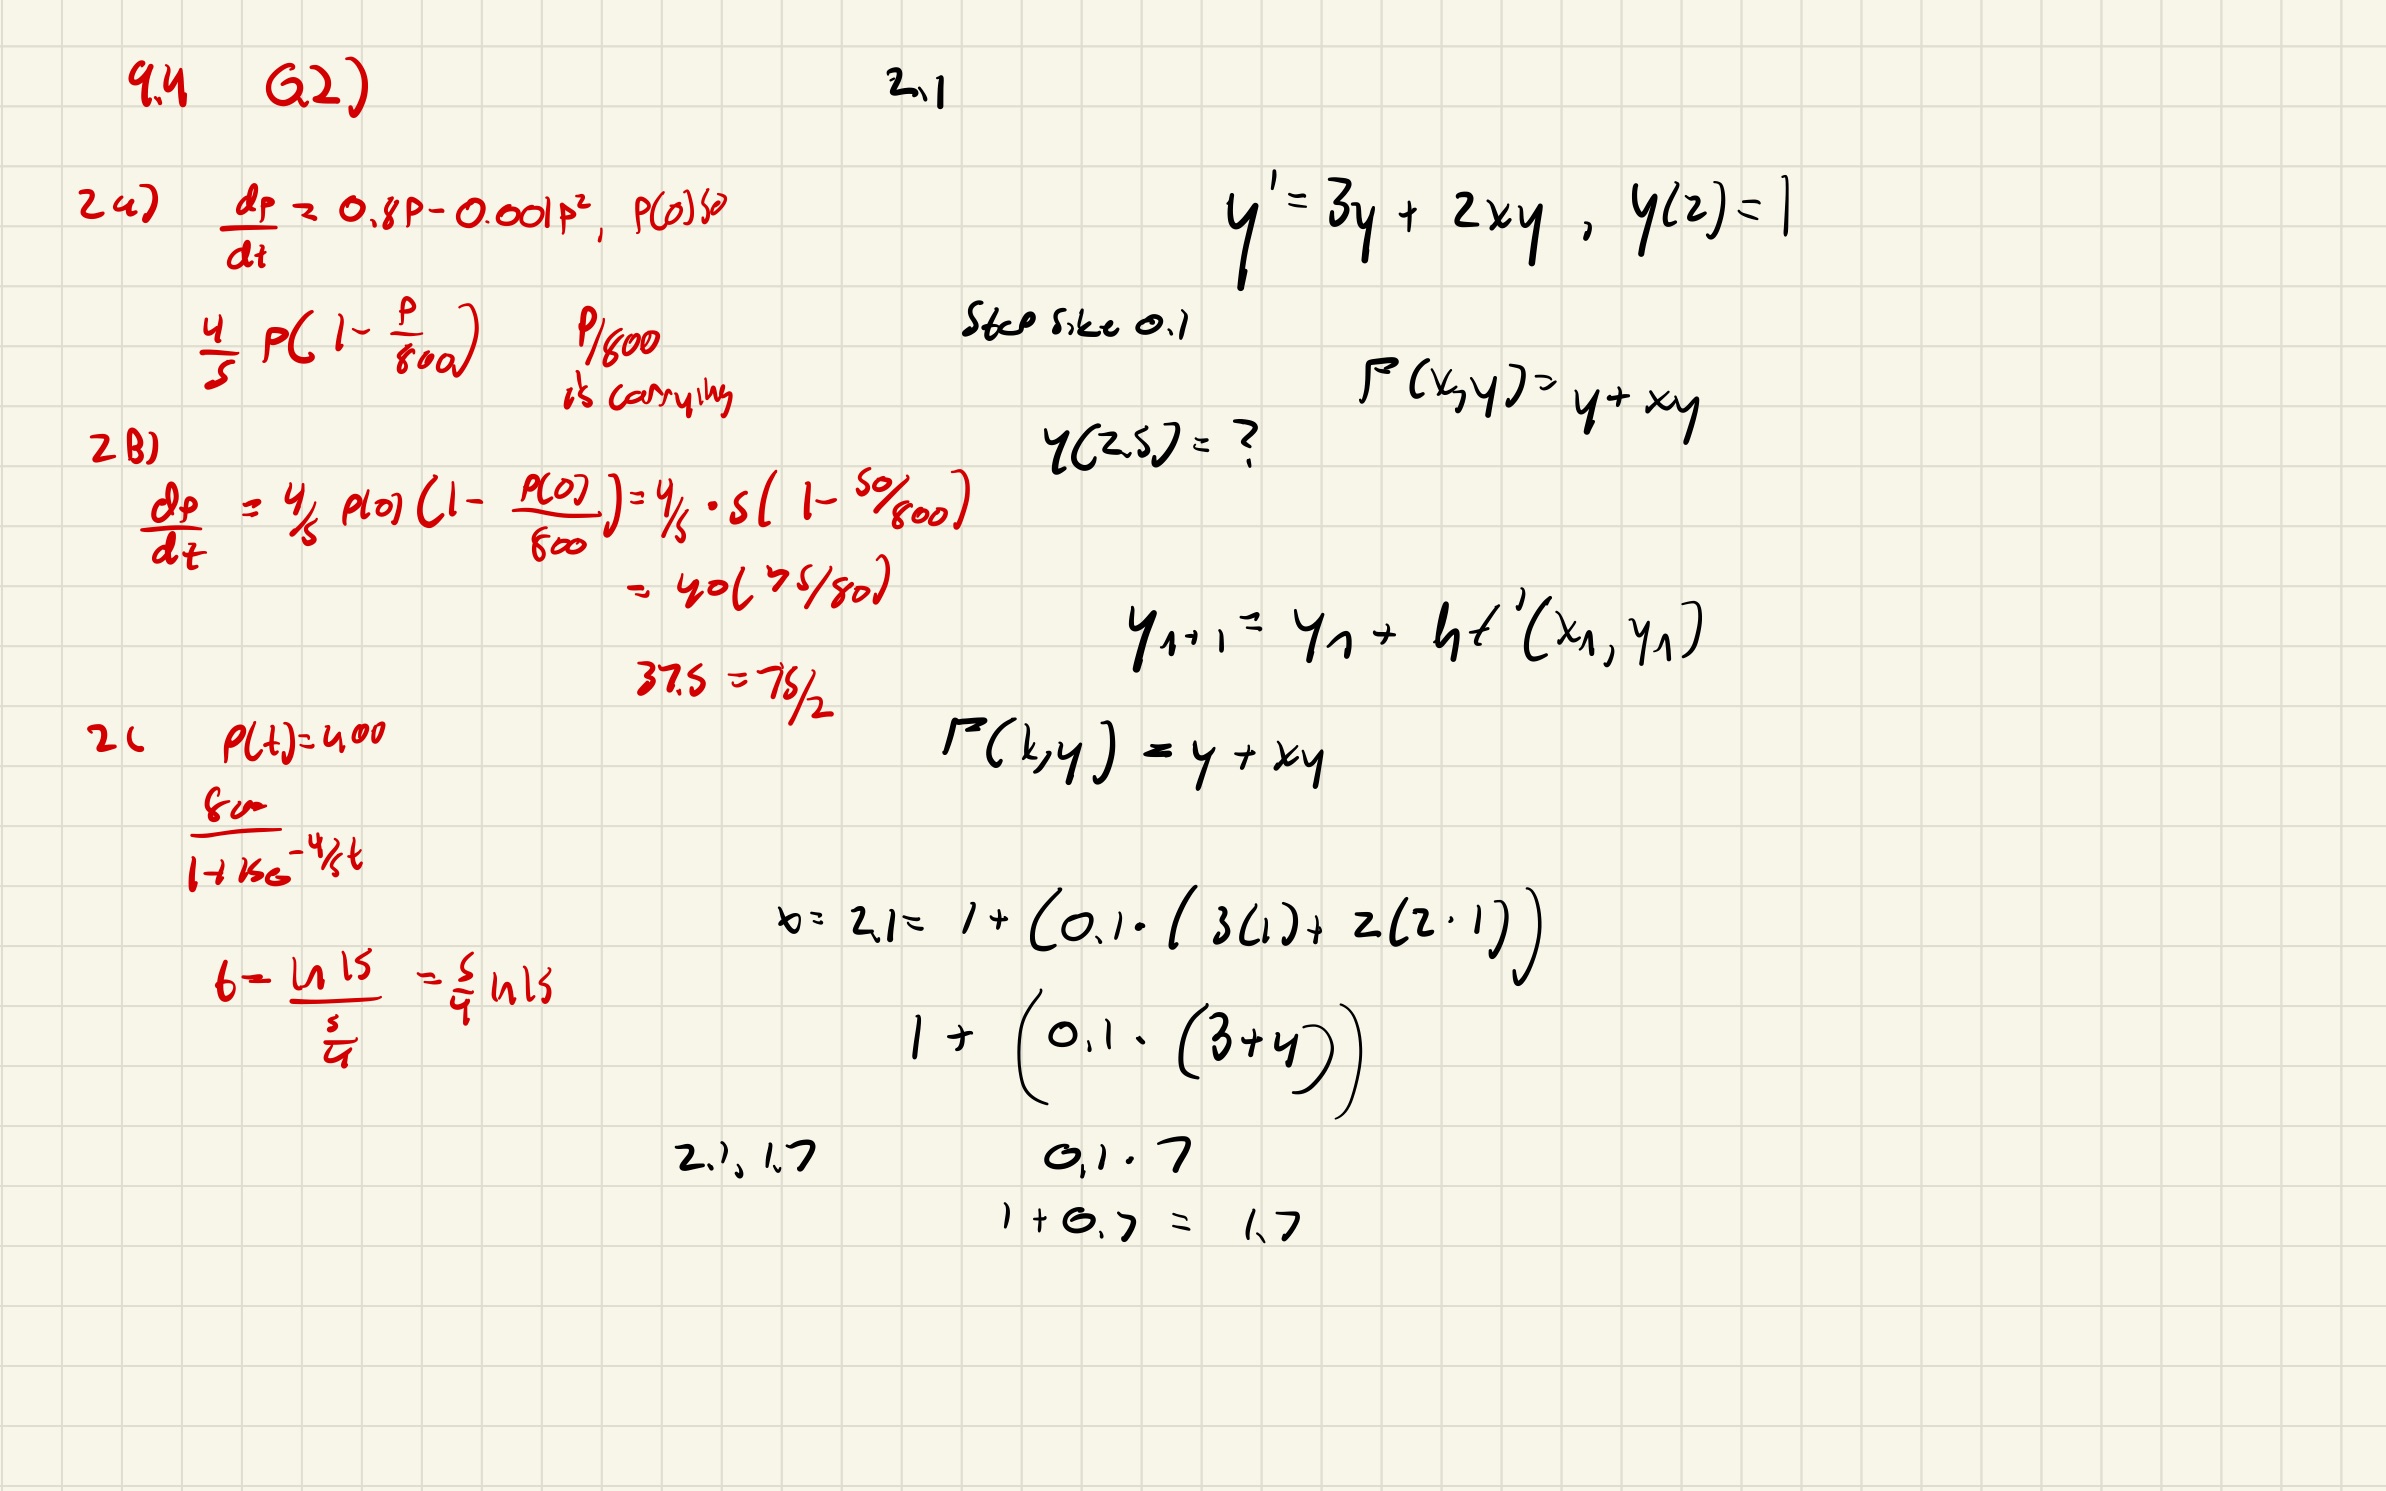 9.4 Q2)
2a) dp/dt = 0.8P - 0.001P², P(0)50
4/5 P(1 - P/800) P/800
is carrying
2B)
dp/dt = 4/5 P(0)(1 - P(0)/800) = 4/5 · 5(1 - 50/800)
= 40(75/80)
37.5 = 75/2
2c P(t)=400
800/1+15e^-4/5t
t = ln15/(5/4) = 5/4 ln15
2.1
y' = 3y + 2xy , y(2)=1
Step size 0.1
F(x,y) = y + xy
y(2.5) = ?
yₙ₊₁ = yₙ + hf'(xₙ, yₙ)
F(x,y) = y + xy
= 2.1 = 1 + (0.1 · (3(1) + 2(2·1)))
1 + (0.1 · (3+4))
2.1, 1.7 0.1 · 7
1 + 0.7 = 1.7